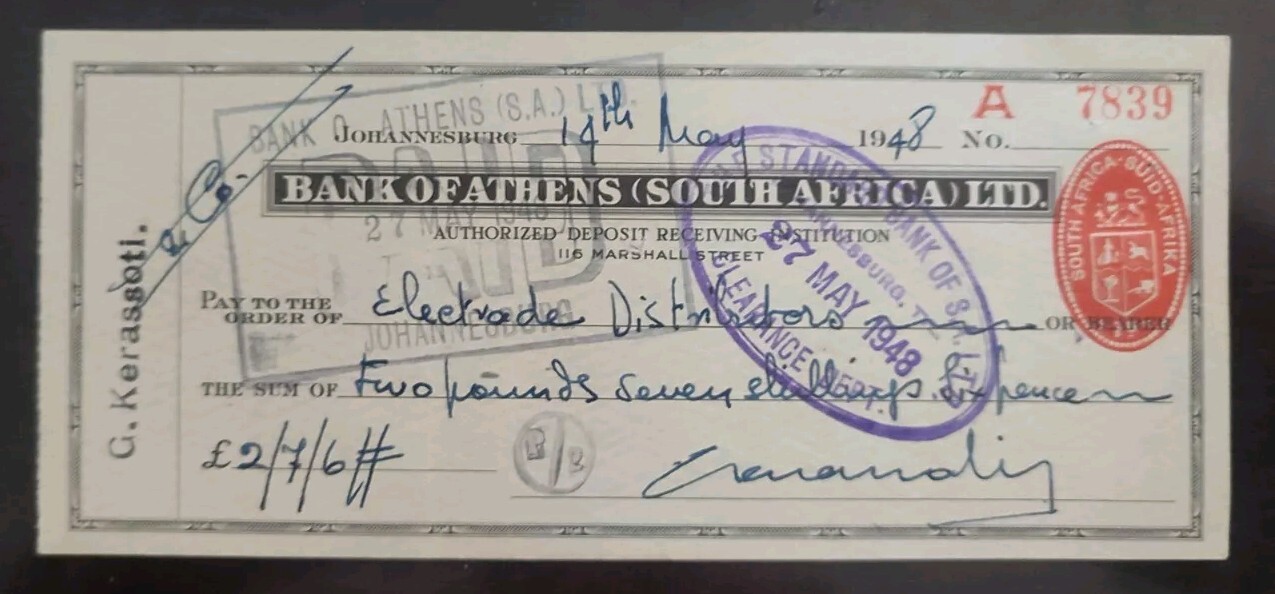 A 7839
JOHANNESBURG 14th May 1948 No.
BANK OF ATHENS (SOUTH AFRICA) LTD.
AUTHORIZED DEPOSIT RECEIVING INSTITUTION
116 MARSHALL STREET
PAY TO THE
ORDER OF Electrade Distributors OR BEARER
THE SUM OF Two pounds Seven shillings Six pence
£2/7/6#
G. Kerassoti.
& Co.
BANK O ATHENS (S.A.) LTD.
PAID
27 MAY 1948
PAID
JOHANNESBURG
STANDARD BANK OF S.
JOHANNESBURG, T
27 MAY 1948
CLEARANCE DEPT.
SOUTH AFRICA · SUID-AFRIKA